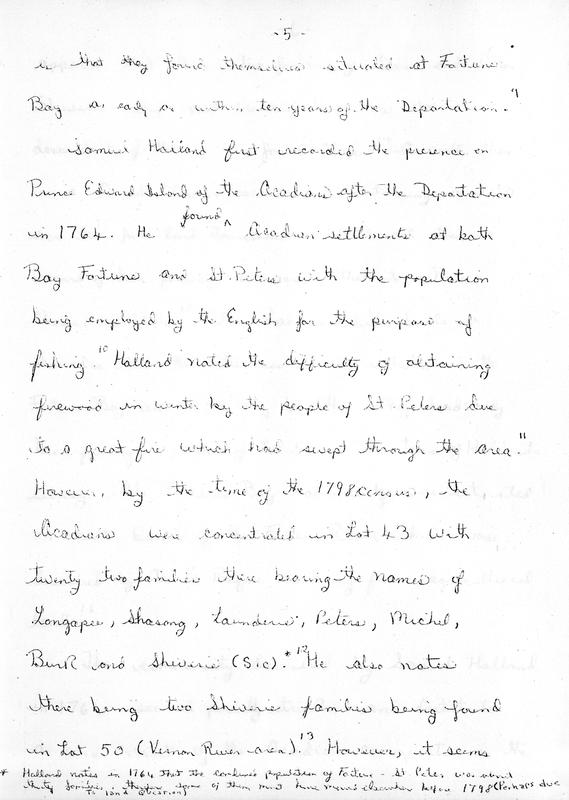 - 5 -
is that they found themselves situated at Fortune
Bay as early as within ten years of the Deportation. 9
Samuel Holland first recorded the presence on
Prince Edward Island of the Acadians after the Deportation
in 1764. He found ^ Acadian settlements at both
Bay Fortune and St. Peters with the population
being employed by the English for the purpose of
fishing. 10 Holland noted the difficulty of obtaining
firewood in winter by the people of St. Peters due
to a great fire which had swept through the area. 11
However, by the time of the 1798 census, the
Acadians were concentrated in Lot 43 with
twenty two families there bearing the names of
Longapee, Shasong, Launderie, Peters, Michel,
Burk and Shiverie (Sic).* 12 He also notes
there being two Shiverie families being found
in Lot 50 (Vernon River area). 13 However, it seems
* Holland notes in 1764 that the combined population of Fortune - St Peters was about
thirty families, therefore some of them must have moved elsewhere before 1798 (Perhaps due
to land question)